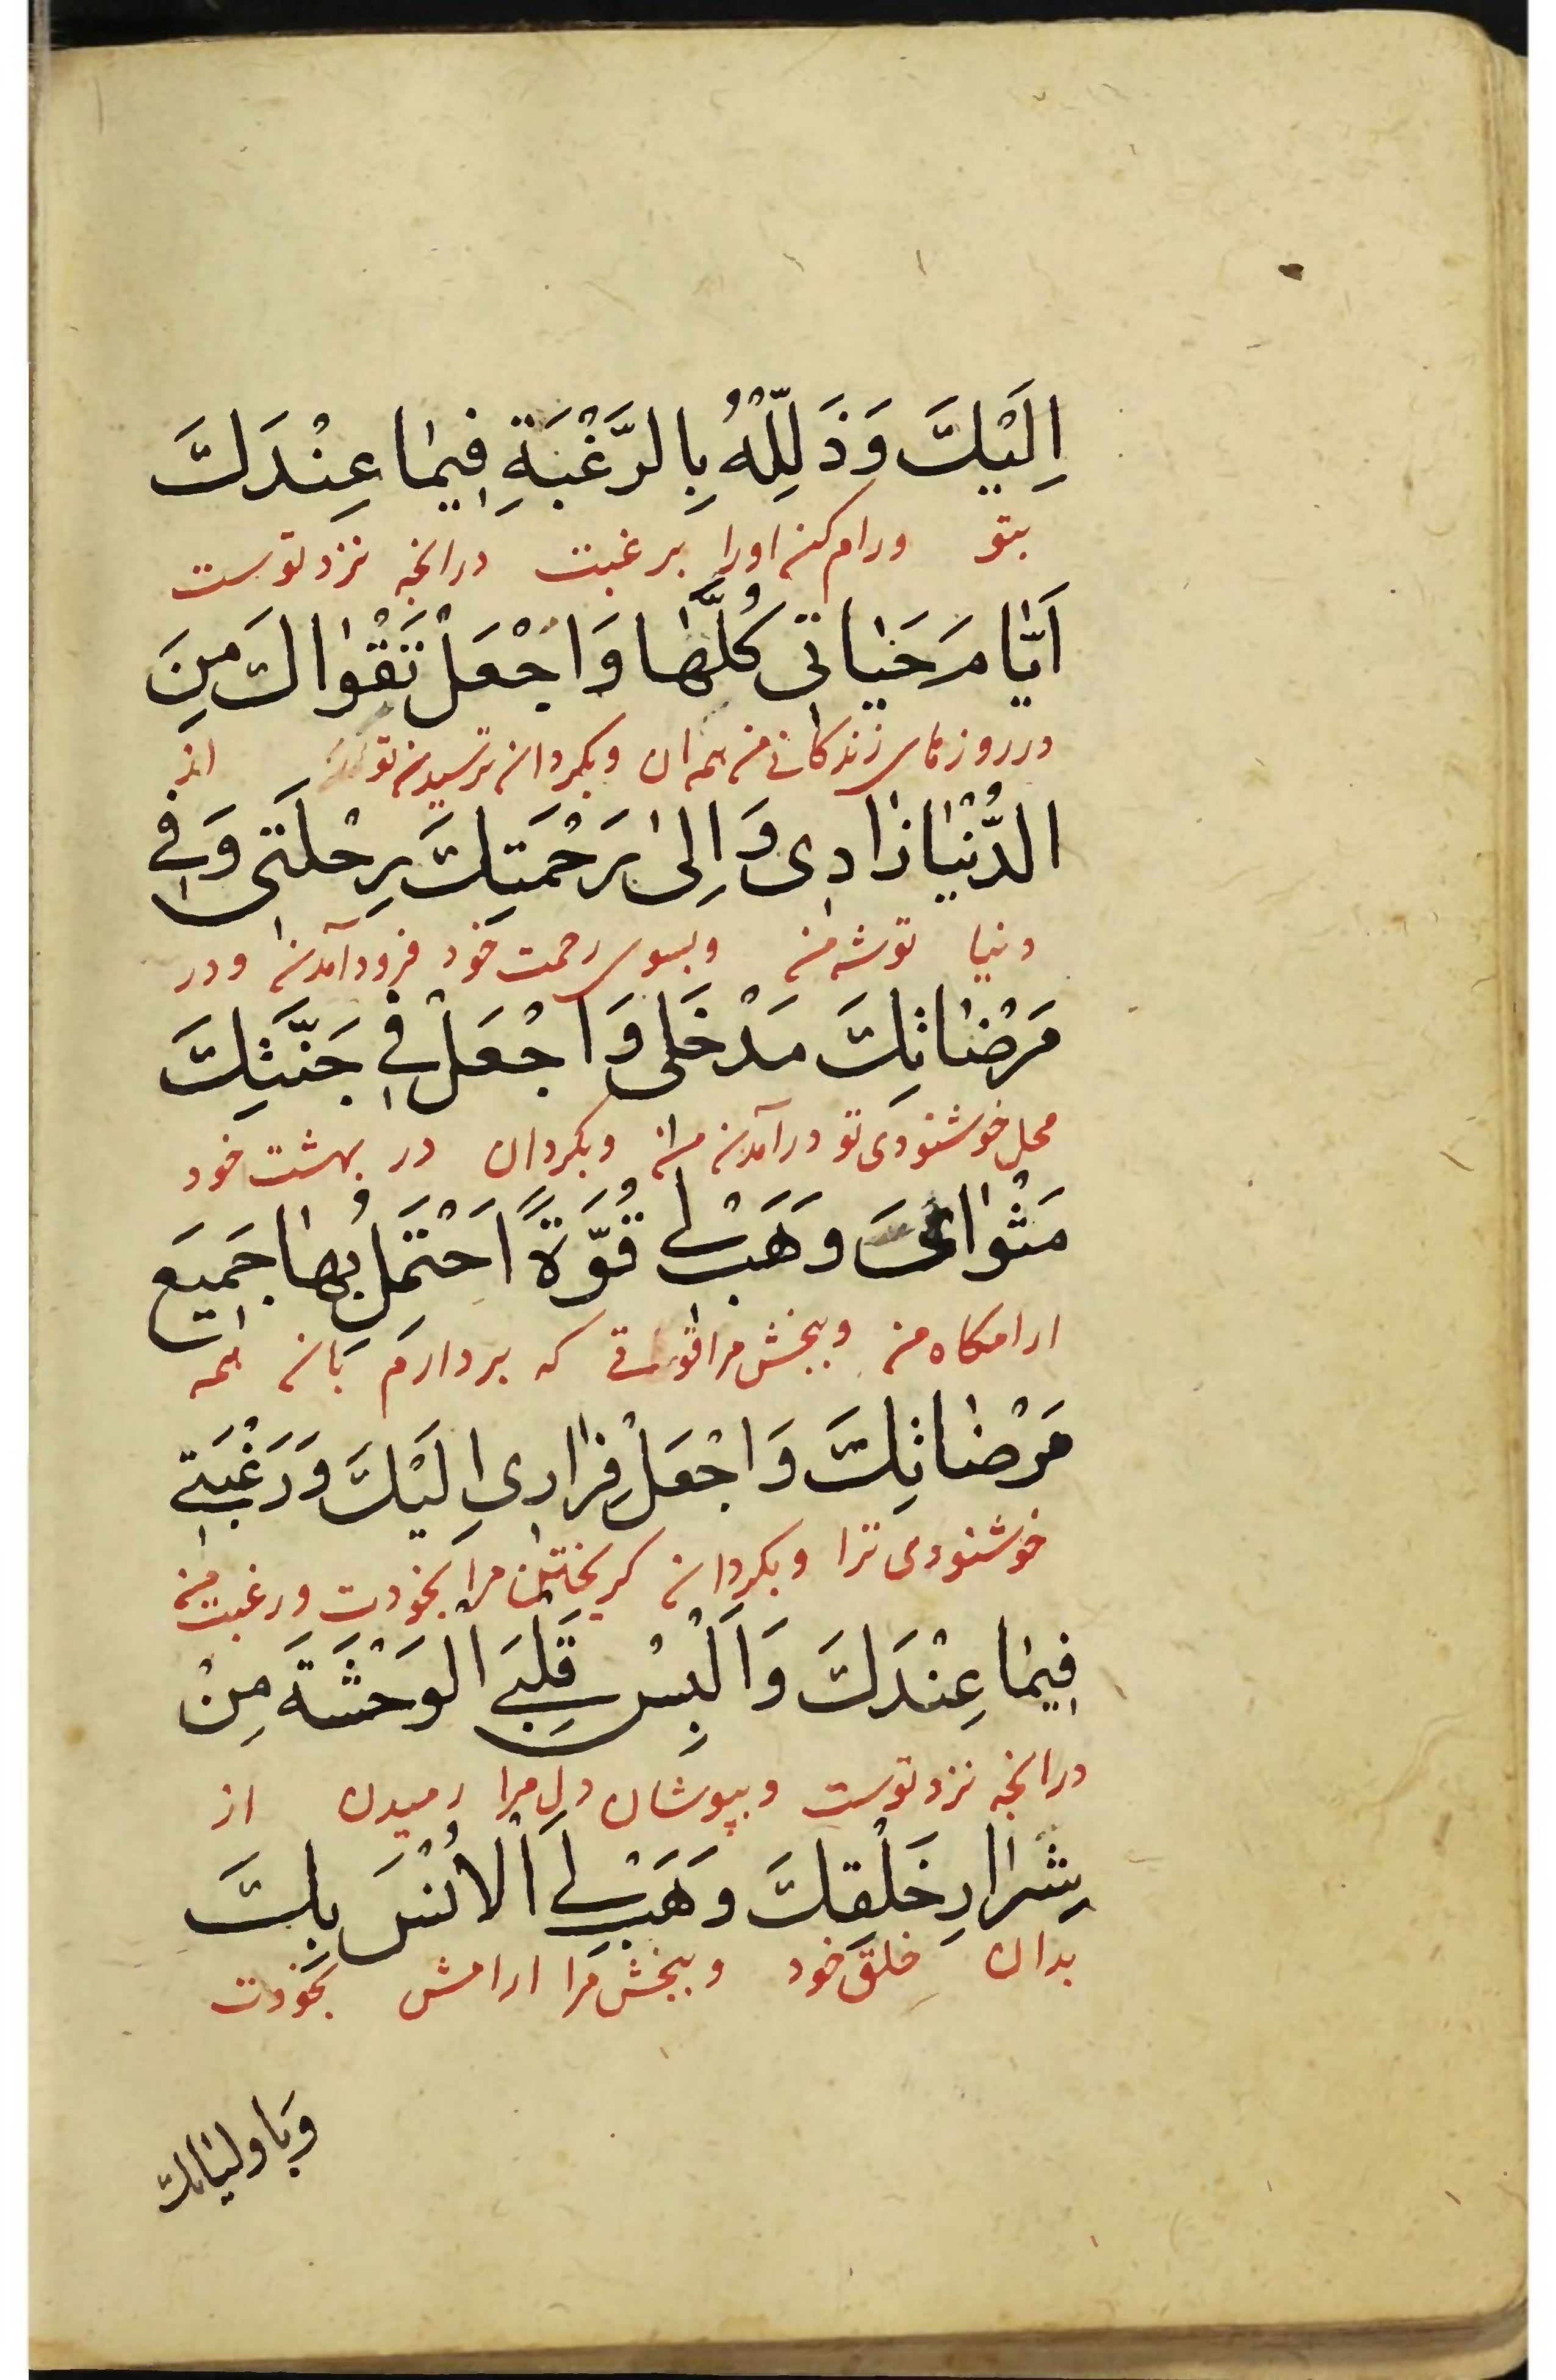 اِلَيْكَ وَذَلِّلْهُ بِالرَّغْبَةِ فِيمٰا عِنْدَكَ
بتو ورام کن اورا برغبت درانچه نزد توست
اَيّٰامَ حَيٰاتی كُلَّهٰا وَاجْعَلْ تَقْوٰاكَ مِنَ
در روزهای زندکانی من همه ان وبکردان ترسیدن تو از
الدُّنْيٰا زٰادی وَاِلىٰ رَحْمَتِكَ رِحْلَتی وَفی
دنیا توشه من وبسوی رحمت خود فرود آمدن ودر
مَرْضٰاتِكَ مَدْخَلی وَاجْعَلْ فی جَنَّتِكَ
محل خوشنودی تو درآمدن من وبکردان در بهشت خود
مَثْوٰایَ وَهَبْ لی قُوَّةً اَحْتَمِلُ بِهٰا جَمِيعَ
ارامکاه من وببخش مرا قوتی که بردارم بان همه
مَرْضٰاتِكَ وَاجْعَلْ فِرٰاری اِلَيْكَ وَرَغْبَتی
خوشنودی ترا وبکردان کریختن مرا بخودت ورغبت من
فِيمٰا عِنْدَكَ وَاَلْبِسْ قَلْبِیَ الْوَحْشَةَ مِنْ
درانچه نزد توست وبپوشان دل مرا رمیدن از
شِرٰارِ خَلْقِكَ وَهَبْ لِیَ الْاُنْسَ بِكَ
بدان خلق خود وببخش مرا ارامش بخودت
وَبِاولیٰائك